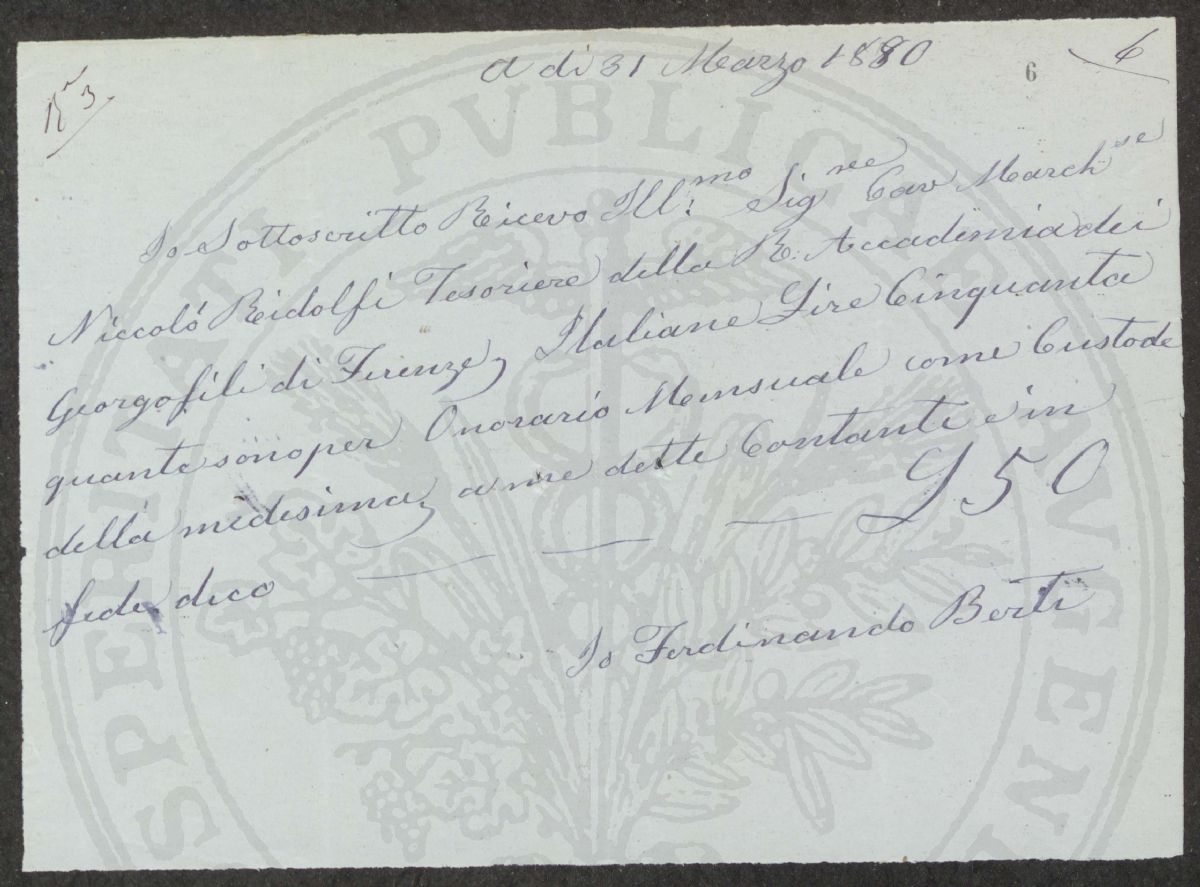 A di 31 Marzo 1880
6
6
Nº 3
Io Sottoscritto Ricevo Ill:mo Sigre Cav Marchse
Niccoló Ridolfi Tesoriere della R. Accademia dei
Georgofili di Firenze, Italiane Lire Cinquanta
quante sono per Onorario Mensuale come Custode
della medesima, a me dette Contanti é in
fede dico — — — £ 50
Io Ferdinando Berti
PROSPERITATI PVBLICAE AVGENDAE